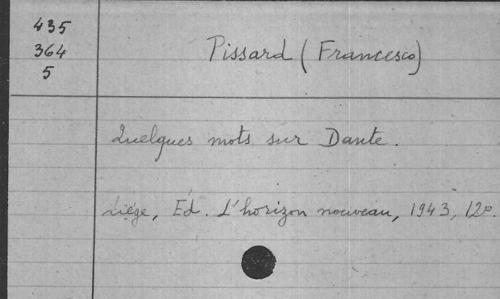 435
364
5
Pissard (Francesco)
Quelques mots sur Dante.
Liége, Ed. L'horizon nouveau, 1943, 12º.